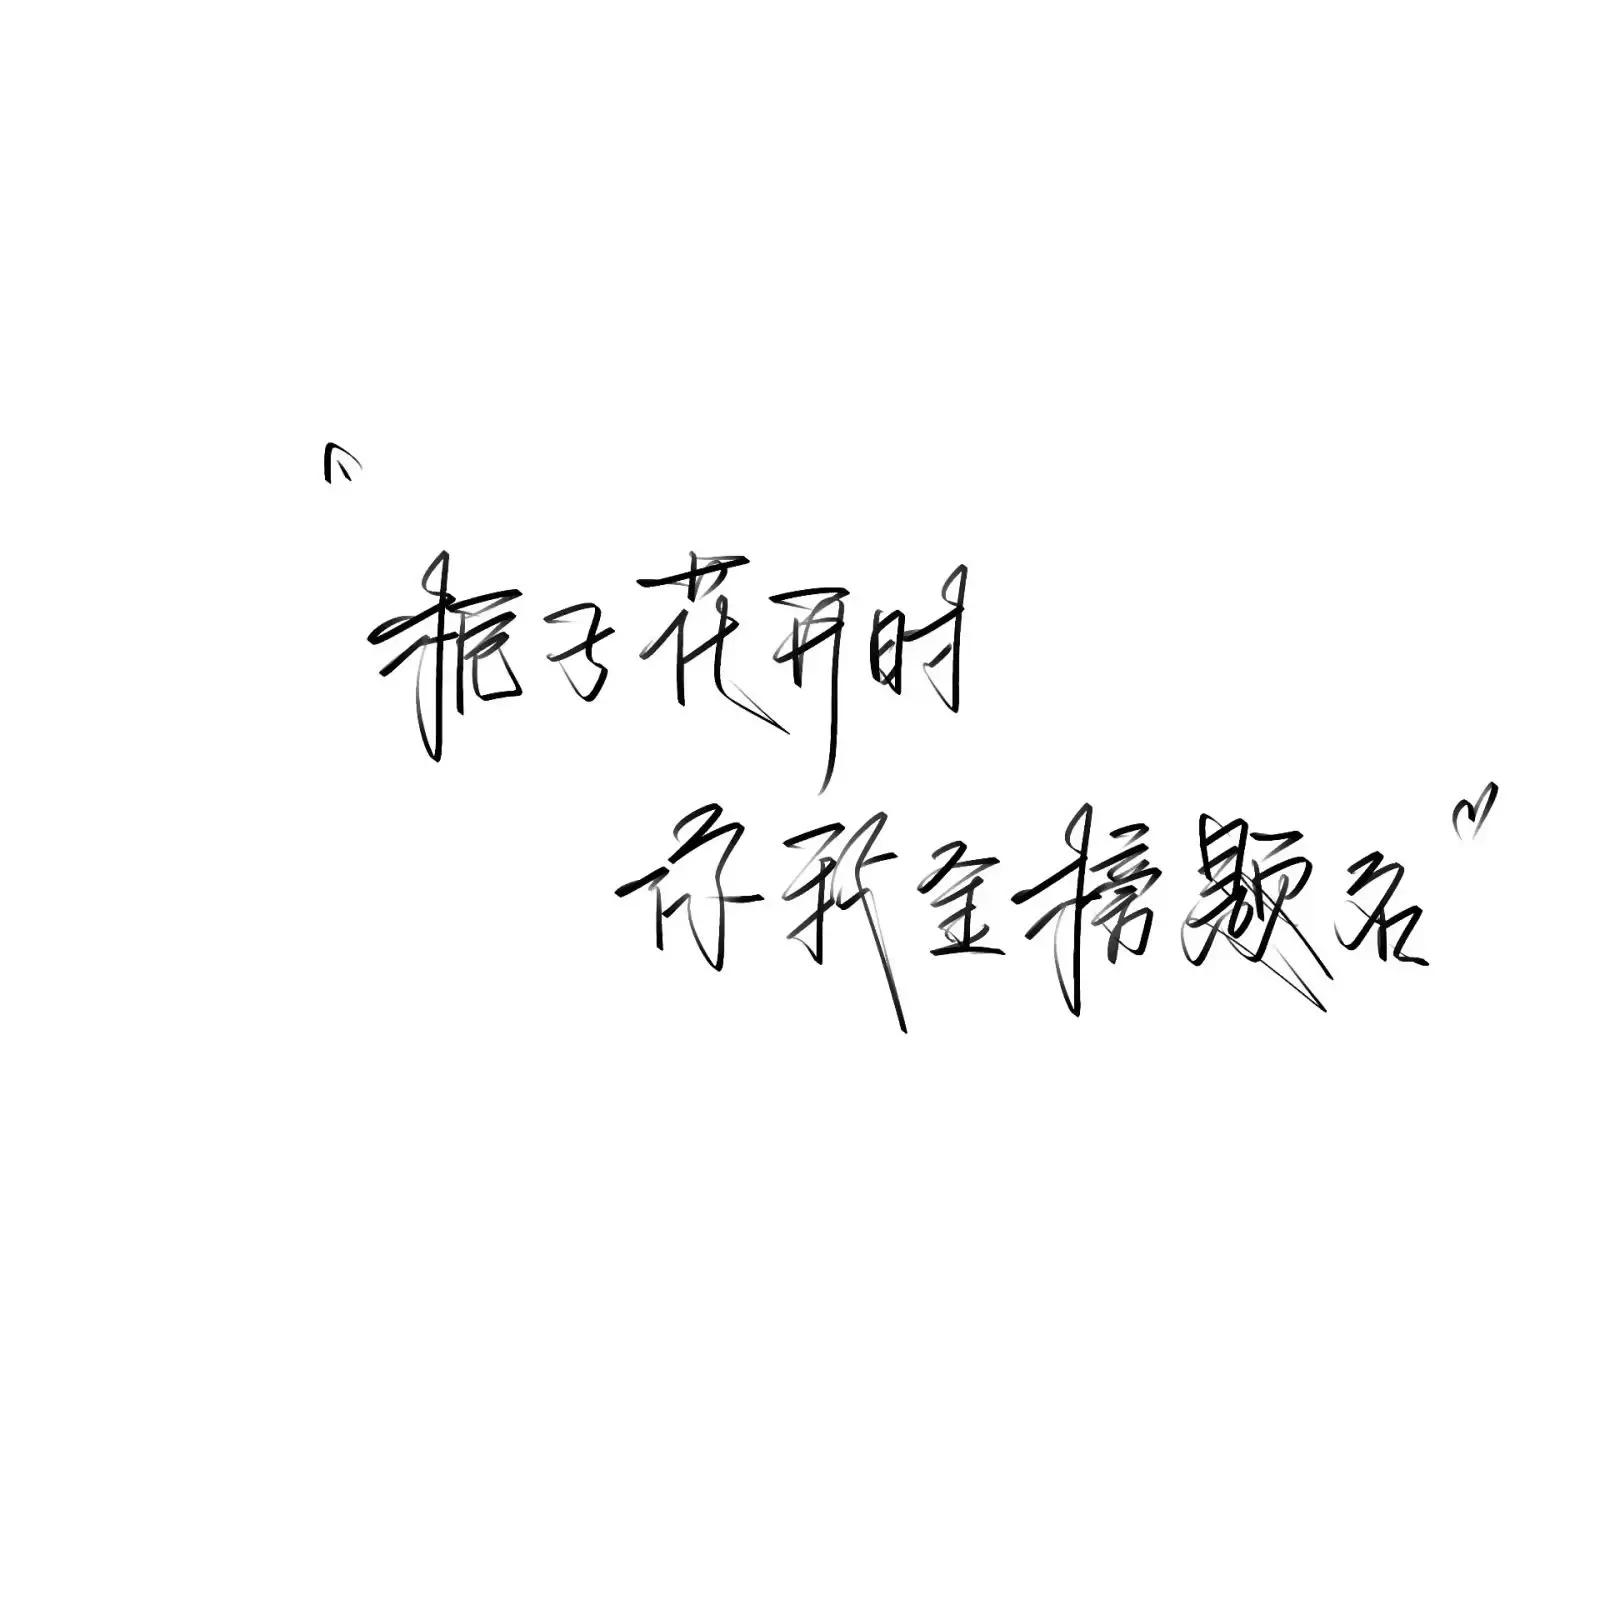 “栀子花开时
你我金榜题名”